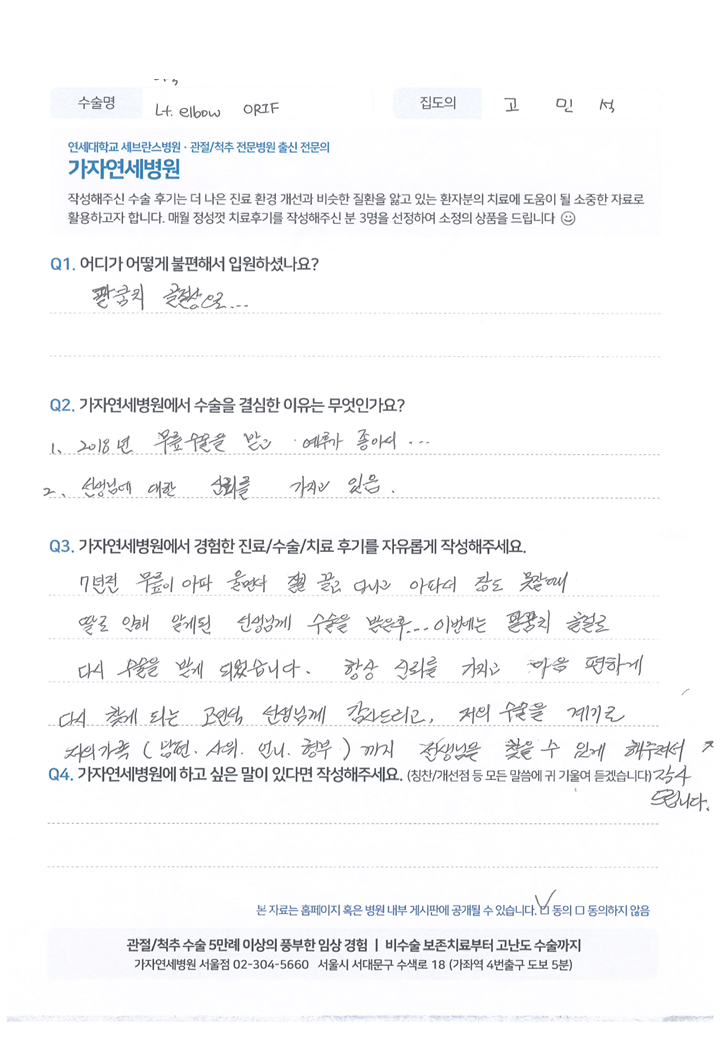 수술명 Lt. elbow ORIF 집도의 고 민 석
연세대학교 세브란스병원 · 관절/척추 전문병원 출신 전문의
가자연세병원
작성해주신 수술 후기는 더 나은 진료 환경 개선과 비슷한 질환을 앓고 있는 환자분의 치료에 도움이 될 소중한 자료로
활용하고자 합니다. 매월 정성껏 치료후기를 작성해주신 분 3명을 선정하여 소정의 상품을 드립니다
Q1. 어디가 어떻게 불편해서 입원하셨나요?
팔꿈치 골절상으로...
Q2. 가자연세병원에서 수술을 결심한 이유는 무엇인가요?
1. 2018년 무릎수술을 받고 예후가 좋아서...
2. 선생님에 대한 신뢰를 가지고 있음.
Q3. 가자연세병원에서 경험한 진료/수술/치료 후기를 자유롭게 작성해주세요.
7년전 무릎이 아파 울면서 절절 끌고 다니고 아파서 잠도 못잘때
딸로 인해 알게된 선생님께 수술을 받은후... 이번에는 팔꿈치 골절로
다시 수술을 받게 되었습니다. 항상 신뢰를 가지고 마음 편하게
다시 찾게 되는 고민석 선생님께 감사드리고, 저의 수술을 계기로
저의가족 (남편. 사위. 언니. 형부) 까지 선생님을 찾을 수 있게 해주셔서
Q4. 가자연세병원에 하고 싶은 말이 있다면 작성해주세요. (칭찬/개선점 등 모든 말씀에 귀 기울여 듣겠습니다) 감사
드립니다.
본 자료는 홈페이지 혹은 병원 내부 게시판에 공개될 수 있습니다. ☑ 동의 □ 동의하지 않음
관절/척추 수술 5만례 이상의 풍부한 임상 경험 | 비수술 보존치료부터 고난도 수술까지
가자연세병원 서울점 02-304-5660 서울시 서대문구 수색로 18 (가좌역 4번출구 도보 5분)